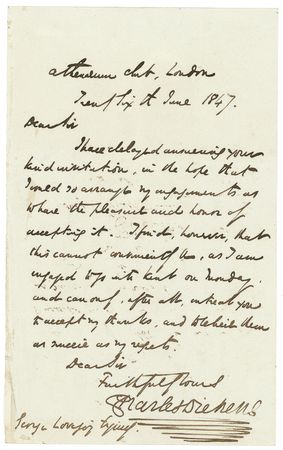 Athenaeum Club, London
Twenty Sixth June 1847.
Dear Sir
I have delayed answering your
kind invitation, in the hope that
I could so arrange my engagements as
to have the pleasure and honor of
accepting it. I find, however, that
this cannot be, as I am
engaged to go into Kent on Monday,
and can only, after all, entreat you
to accept my thanks, and to believe them
as sincere as my regrets.
Dear Sir
Faithfully Yours
Charles Dickens
George Lovejoy Esquire